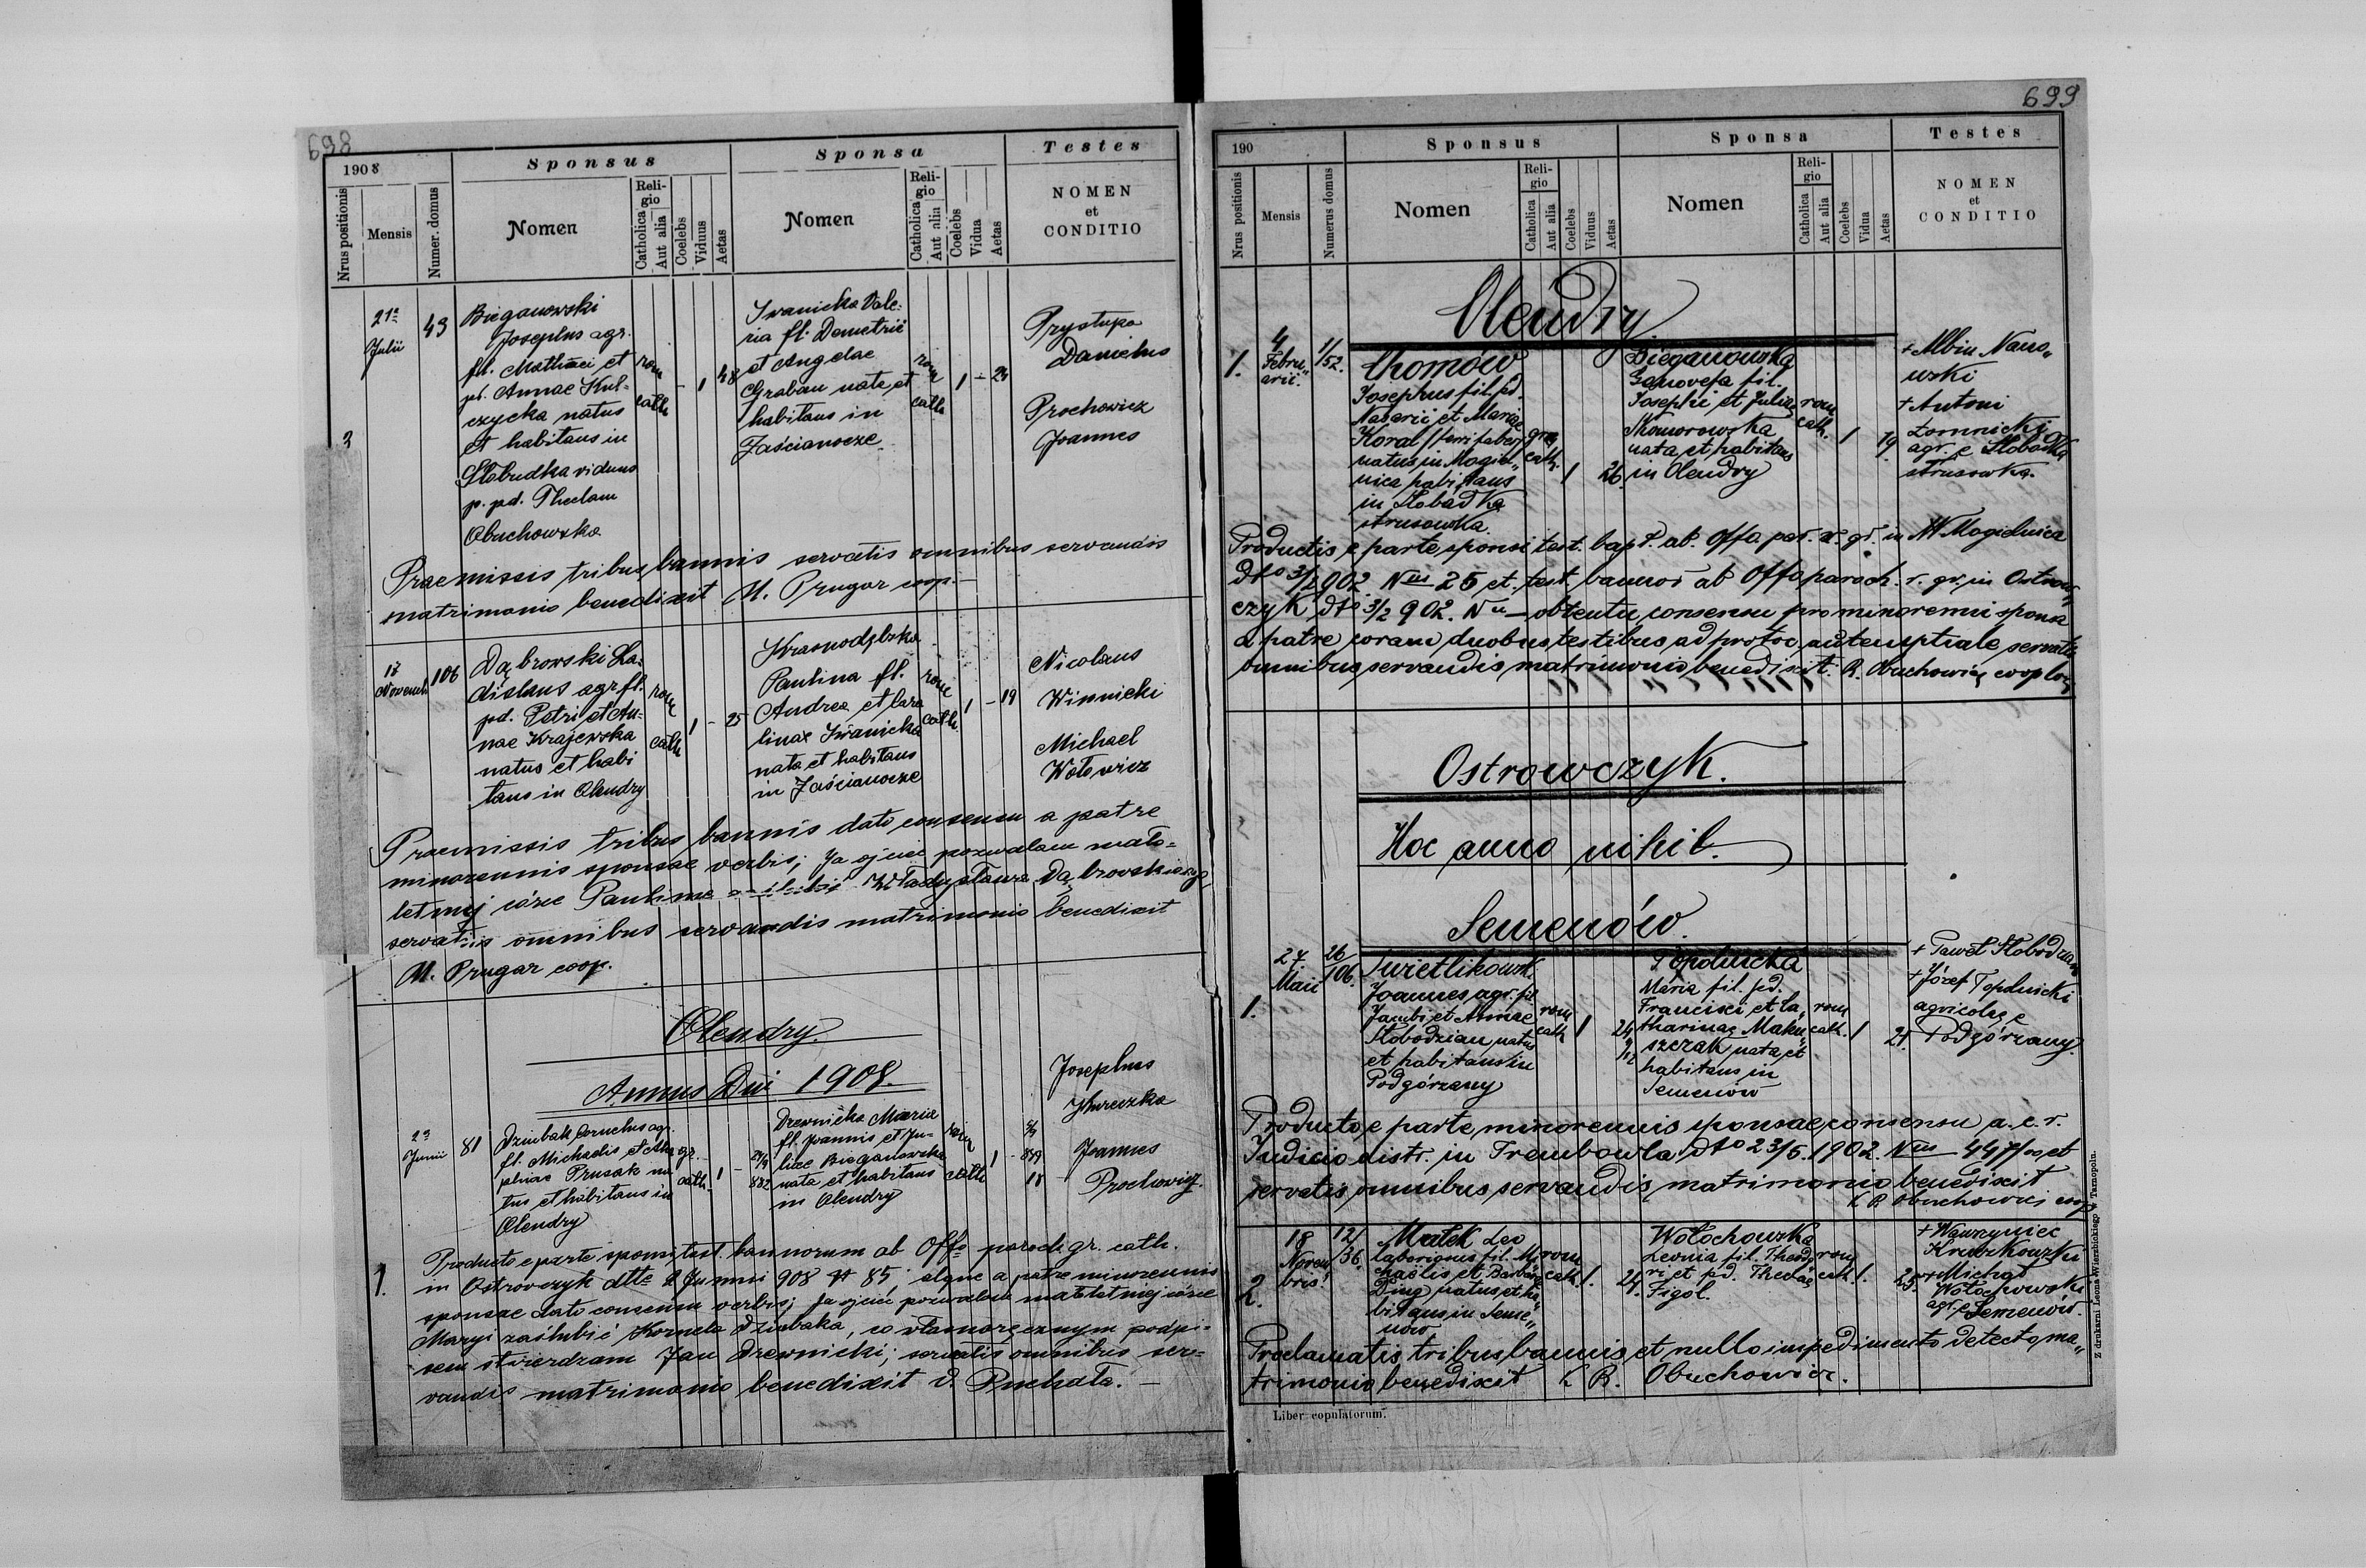 698
1908
Sponsus
Sponsa
Testes
Nrus positionis
Mensis
Numer. domus
Nomen
Religio
Catholica
Aut alia
Coelebs
Viduus
Aetas
Nomen
Religio
Catholica
Aut alia
Coelebs
Vidua
Aetas
NOMEN
et
CONDITIO
3
21a
Julii
43
Bieganowski
Josephus agr.
fil. Mathaei et
pd. Annae Kul-
czycka natus
et habitans in
Slobudka viduus
p. pd. Theclam
Obuchowska
rom
cath
- 1 48
Iwanicka Vale-
ria fl. Demetrii
et Angelae
Graban nata et
habitans in
Zaścianocze
rom
cath
1 - 24
Prystupa
Danielus
Prochowicz
Joannes
Praemissis tribus bannis servatis omnibus servandis
matrimonio benedixit M. Prugar coop.
17
Novemb
106
Dąbrowski La-
dislaus agr. fl.
pd. Petri et An-
nae Krajewska
natus et habi
tans in Olendry
rom
cath
1 - 25
Krasnodębska
Paulina fl.
Andrea et Caro
linae Iwanicka
nata et habitans
in Zaścianocze
rom
cath.
1 - 19
Nicolaus
Winnicki
Michael
Wołowicz
Praemissis tribus bannis dato consensu a patre
minorennis sponsae verbis; Ja ojciec pozwalam mało-
letniej córce Paulinie Władysława Dąbrowskiego,
servatis omnibus servandis matrimonio benedixit
M. Prugar coop.
Olendry.
Annus Dni 1908.
1.
2a
Junii
81
Dziubak Cornelius agr.
fl. Michaelis et Aga
phiae Prusak na
tus et habitans in
Olendry
gr.
cath.
1 -
882
Drewnicka Maria
fl. Joannis et Ju-
liae Bieganowska
nata et habitans
in Olendry
rom
cath
1 -
18
Josephus
Hureczka
Joannes
Prochowicz
Producto e parte sponsi test. bannorum ab Offo paroch gr. cath.
in Ostrowczyk dtto 2 Junii 908 N 85, atque a patre minorennis
sponsae dato consensu verbis; Ja ojciec pozwalam małoletniej córce
Maryi zaślubić Kornela Dziubaka, co własnoręcznym podpi-
sem stwierdzam Jan Drewnicki; servatis omnibus ser-
vandis matrimonio benedixit V. Puchała.
699
190
Sponsus
Sponsa
Testes
Nrus positionis
Mensis
Numerus domus
Nomen
Religio
Catholica
Aut alia
Coelebs
Viduus
Aetas
Nomen
Religio
Catholica
Aut alia
Coelebs
Vidua
Aetas
NOMEN
et
CONDITIO
Olendry
1.
4
Febru"
arii.
1/52.
Chomów
Josephus fil. pd.
Nazarii et Mariae
Koral ferri faber
natus in Mogiel"
nica habitans
in Słobódka
strusowka
gr.
cath.
1
26
Bieganowska
Genovefa fil.
Josephi et Juliae
Komorowska
nata et habitans
in Olendry
rom
cath.
1
19
+ Albin Nawo"
wski
+ Antoni
Łomnicki
agr. e Słobódka
strusowka.
Productis e parte sponsi test. bapt. ab. Offo par. r. gr. in Mogielnica
dto 3/2 902. Nus 25 et test. bannor ab Offo paroch. r. gr. in Ostrow"
czyk dto 3/2 902. Nu — obtentu consensu pro minorenni sponsa
a patre coram duobus testibus ad protoc antenuptiale servatis
omnibus servandis matrimonio benedixit. R. Obuchowicz coop loc
Ostrowczyk.
Hoc anno nihil.
Semenów.
1.
27
Maii
26/106.
Swietlikowsk.
Joannes agr. fil.
Jacobi et Annae
Słobodzian natus
et habitans in
Podgórzany
rom
cath
1
24
Topolnicka
Maria fil. pd.
Francisci et Ca"
tharinae Maku"
szczak nata et
habitans in
Semenów
rom
cath.
1
21
+ Paweł Słobodzian
+ Józef Topolnicki
agricolae e
Podgórzany.
Producto e parte minorennis sponsae consensu a. c. r.
Judicio distr. in Trembowla dto 23/5. 1902. Nus et
servatis omnibus servandis matrimonio benedixit
X R. Obuchowicz coop
2.
18
Novem
bris.
12/36.
Małek Leo
laboriosus fil. M
chaëlis et Barbarae
Dmę natus et ha"
bitans in Seme"
nów
rom
cath.
1.
24
Wołochowska
Leonia fil. Theodo
ri et pd. Theclae
Figol.
rom
cath.
1.
25.
+ Wawrzyniec
Kruszkowski
+ Michał
Wołochowski
agr. e Semenów.
Proclamatis tribus bannis et nullo impedimento detecto, ma"
trimonio benedixit X R. Obuchowicz.
Liber copulatorum.
Z drukarni Leona Wierzbickiego w Tarnopolu.